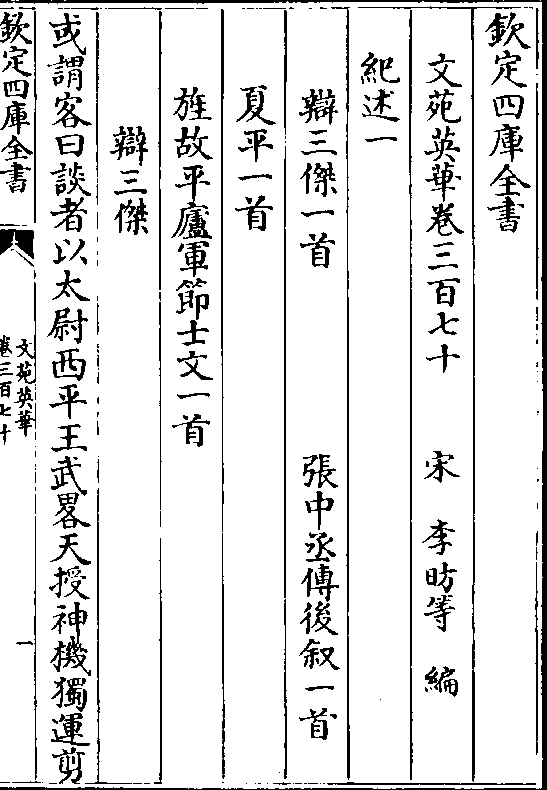 欽定四庫全書
文苑英華卷三百七十 宋 李昉等 編
紀述一
辯三傑一首 張中丞傳後叙一首
夏平一首
旌故平廬軍節士文一首
辯三傑
或謂客曰談者以太尉西平王武畧天授神機獨運剪
欽定四庫全書
文苑英華
卷三百七十
一